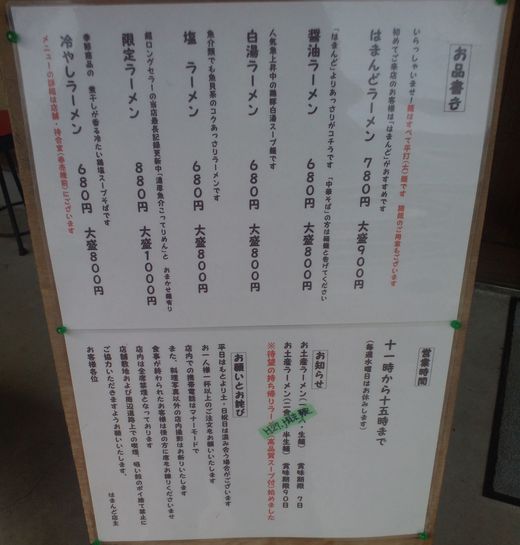 お品書き
いらっしゃいませ！麺はすべて平打(太)麺です　細麺のご用意もございます
初めてご来店のお客様は「はまんど」がおすすめです
はまんどラーメン　780円　大盛900円
「はまんど」よりあっさりがコチラです　「中華そば」の方は細麺と告げてください
醤油ラーメン　680円　大盛800円
人気急上昇中の鶏豚白湯スープ麺です
白湯ラーメン　680円　大盛800円
魚介類でも魚貝系のコクあっさりラーメンです
塩　ラーメン　680円　大盛800円
超ロングセラーの当店最長記録更新中「濃厚魚介こってりめん」と　おまかせ麺有り
限定ラーメン　880円　大盛1000円
季節商品の　煮干しが香る冷たい鶏塩スープそばです
冷やしラーメン　680円　大盛800円
メニューの詳細は店舗・待合室(券売機前)にございます
営業時間
十一時から十五時まで
(毎週水曜日はお休みします)
お知らせ
お土産ラーメン(二食・生麺)　賞味期限　7日
お土産ラーメン(二食・半生麺)　賞味期限90日
※待望の持ち帰りラー　(高品質スープ付)始めました
お願いとお詫び
平日はもとより土・日祝日は混み合う場合がございます
お一人様一杯以上のご注文をお願いいたします
店内での携帯電話はマナーモードで
また、料理写真以外の店内撮影はお断りいたします
食事が終わられたお客様は後の方に席をお譲りくださいませ
店内は全席禁煙となっております
店舗敷地および周辺道路上での喫煙、吸い殻のポイ捨て禁止に
ご協力いただきますようお願いいたします。
お客様各位　はまんど店主